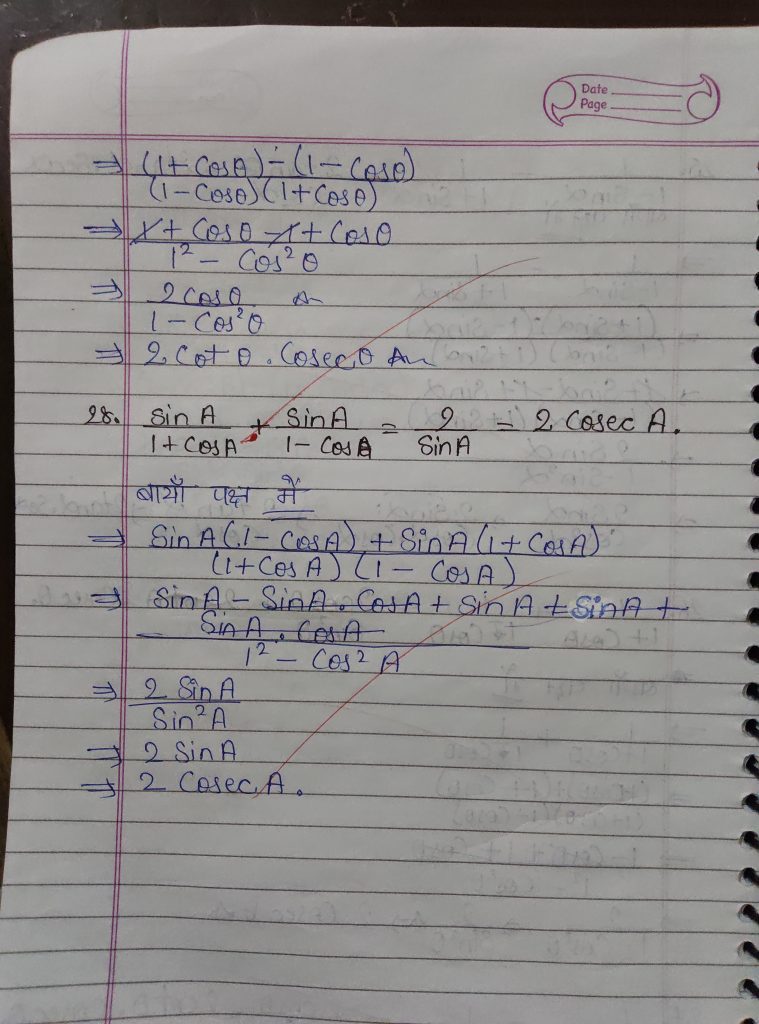 Date
Page
⇒ (1+ CosA) - (1 - Cosθ)
(1 - Cosθ) (1 + Cosθ)
⇒ 1 + Cosθ - 1 + Cosθ
1² - Cos²θ
⇒ 2 Cosθ
1 - Cos²θ
⇒ 2 Cotθ . Cosecθ
28. Sin A + Sin A = 2 = 2 Cosec A.
1 + CosA 1 - CosA SinA
बायाँ पक्ष में
⇒ Sin A (1 - CosA) + Sin A (1 + CosA)
(1 + CosA) (1 - CosA)
⇒ Sin A - SinA . CosA + Sin A + SinA +
SinA . CosA
1² - Cos² A
⇒ 2 Sin A
Sin² A
⇒ 2 Sin A
⇒ 2 Cosec A.